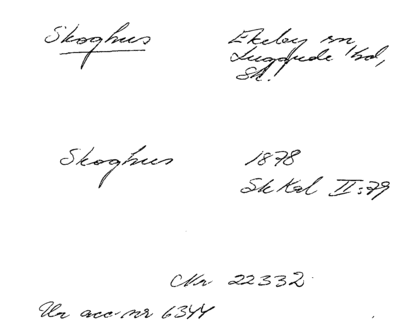 Skoghus
Ekeby sn
Luggude hd,
Sk.
Skoghus
1878
Sk Kal II:79
Nr 22332
Ur acc-nr 6344